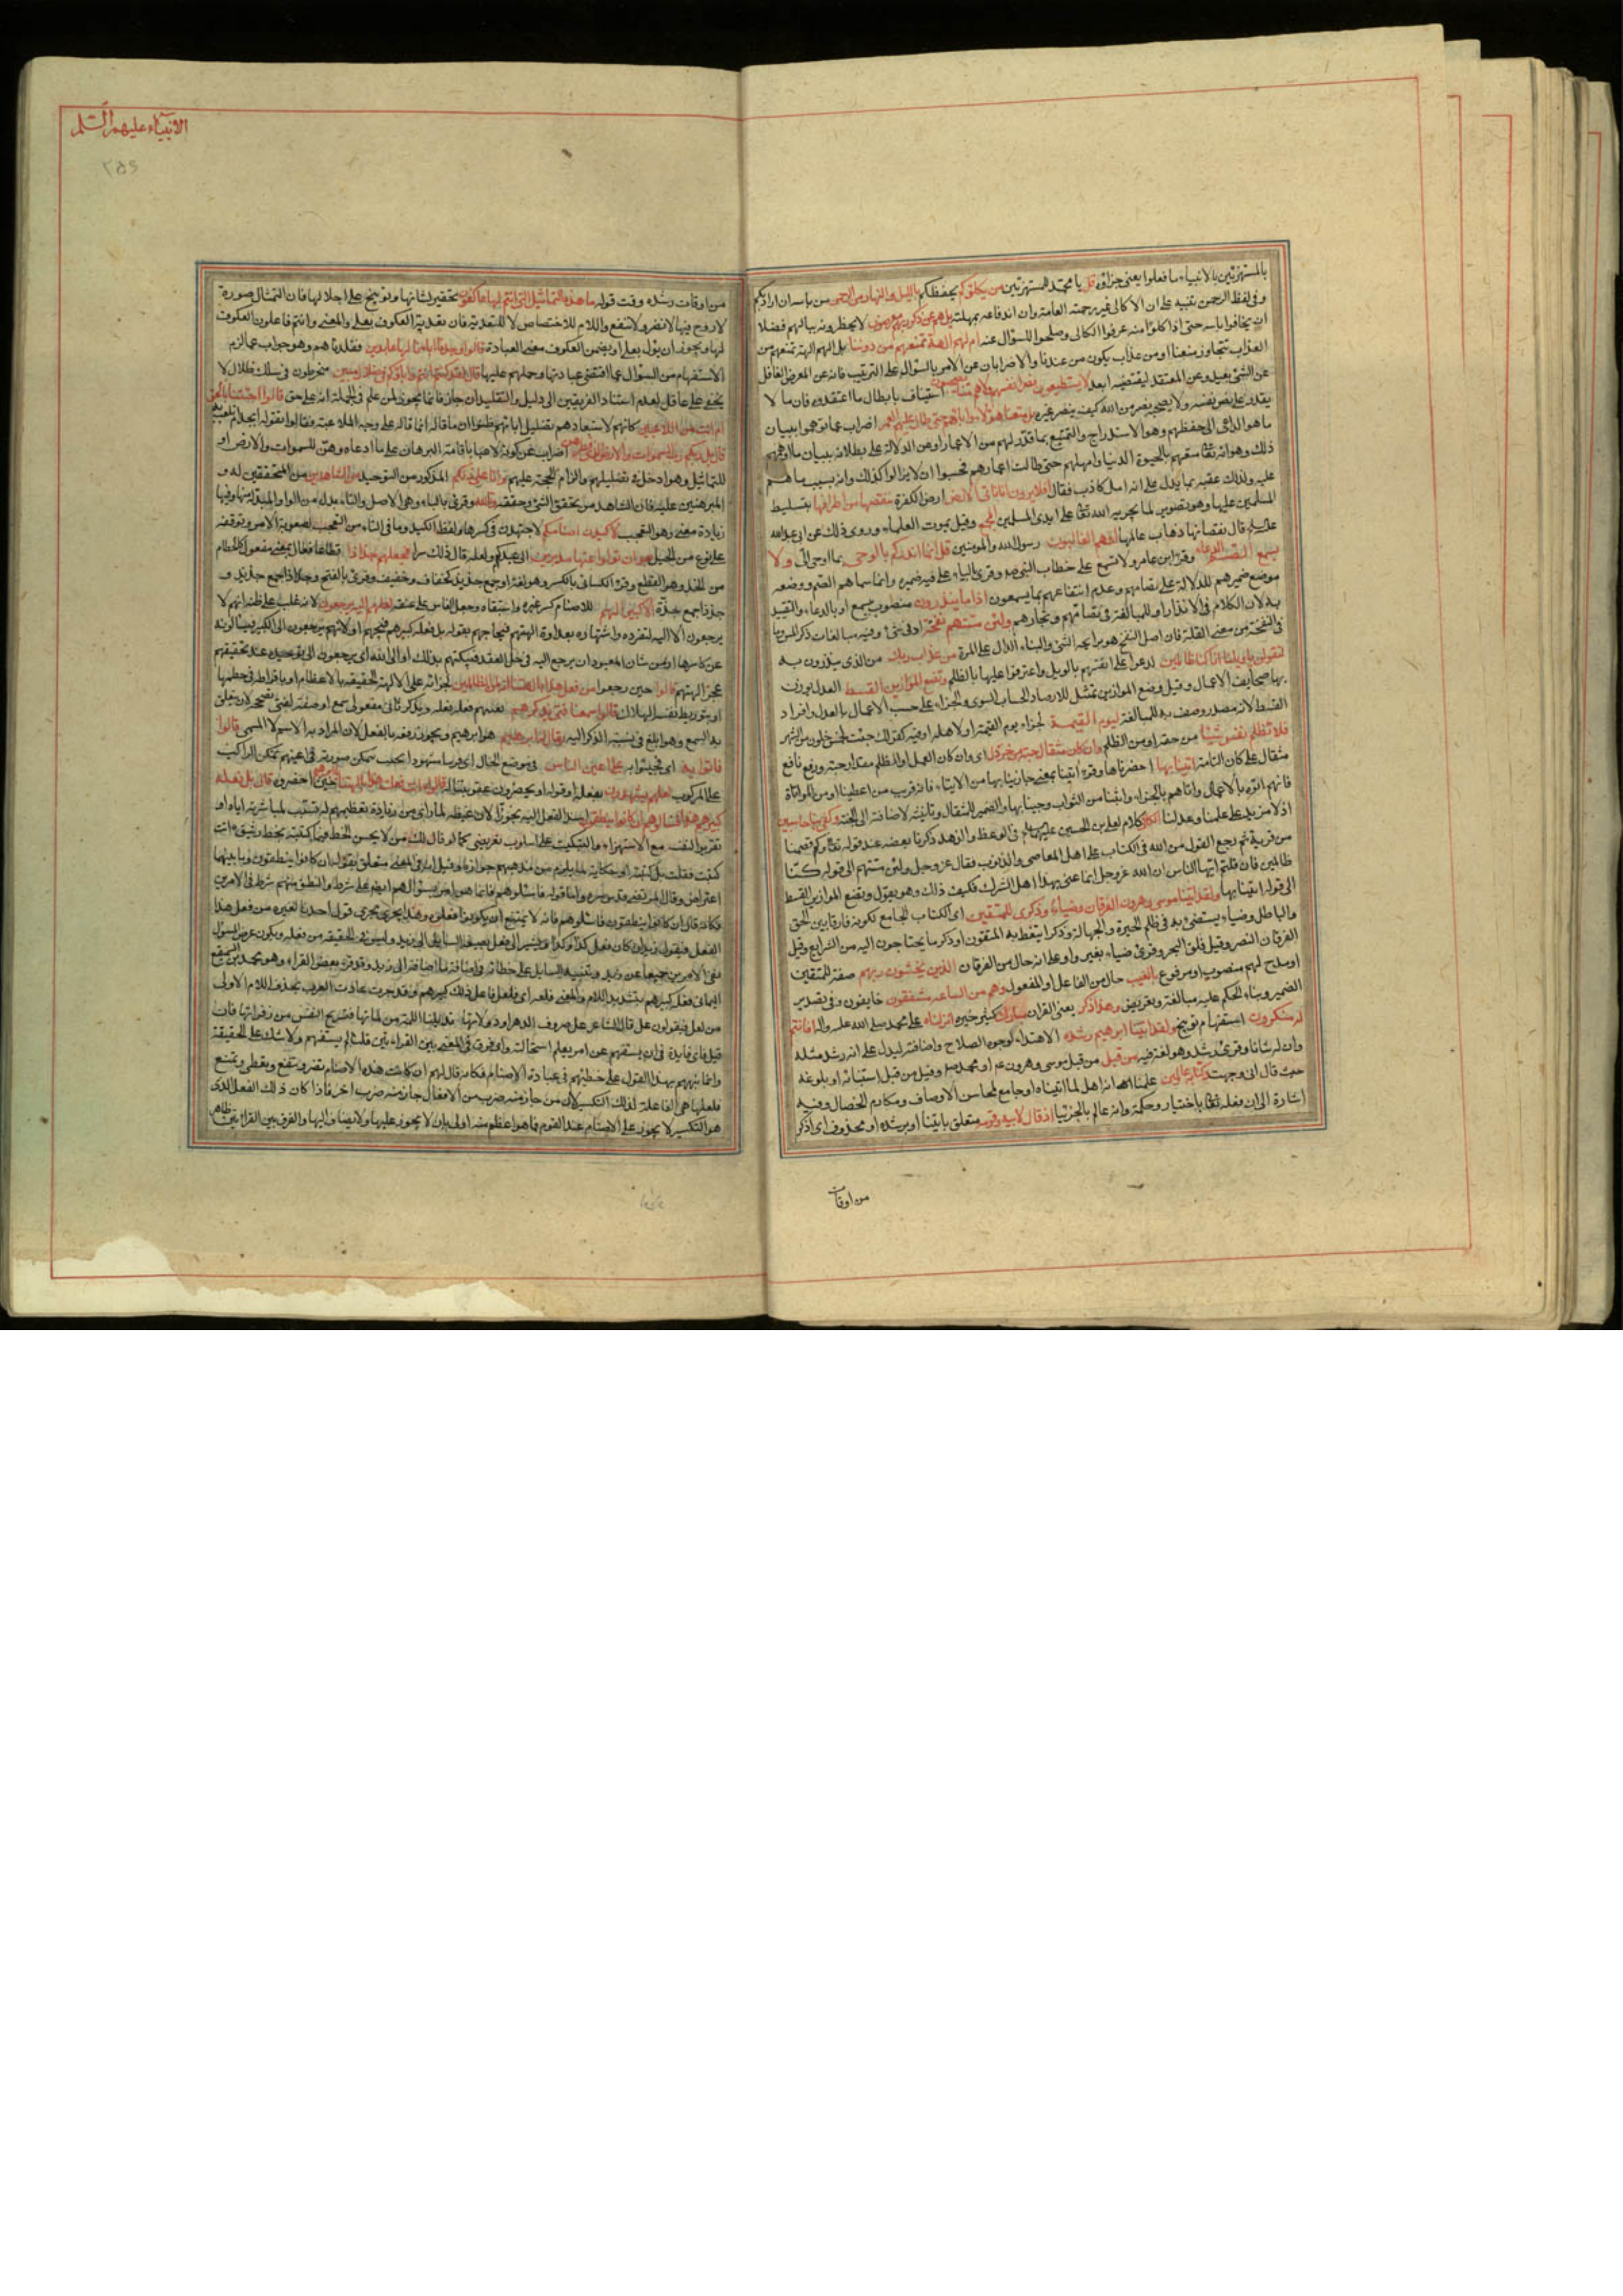 الانبياء عليهم السلم
٢٥٤
بالمستهزئين بالانبياء ما فعلوا يعنى جزاؤه قل يا محمد للمستهزئين من يكلؤكم يحفظكم بالليل والنهار من الرحمن من باسه ان ارادكم
وفى لفظ الرحمن تنبيه على ان لا كالئ غير رحمته العامة وان اندفاعه بمهلته بل هم عن ذكر ربهم معرضون لا يخطرونه ببالهم فضلا
ان يخافوا باسه حتى اذا كلؤا منه عرفوا الكالى وصلحوا للسؤال عنه ام لهم الهة تمنعهم من دوننا بل الهم الهة تمنعهم من
العذاب تتجاوز منعنا او من عذاب يكون من عندنا والاضرابان عن الامر بالسؤال على الترتيب فانه عن المعرض الغافل
عن الشئ بعيد وعن المعتقد لنقيضه ابعد لا يستطيعون نصر انفسهم ولا هم منا يصحبون استيناف بابطال ما اعتقدوه فان ما لا
يقدر على نصر نفسه ولا يصحبه نصر من الله كيف ينصر غيره بل متعنا هؤلاء واباءهم حتى طال عليهم العمر اضراب عما توهموا ببيان
ما هو الداعى الى حفظهم وهو الاستدراج والتمتيع بما قدر لهم من الاعمار او عن الدلالة على بطلانه ببيان ما اوهمهم
ذلك وهو انه تعالى متعهم بالحيوة الدنيا وامهلهم حتى طالت اعمارهم فحسبوا ان لا يزالوا كذلك وانه بسبب ما هم
عليه ولذلك عقبه بما يدل على انه امل كاذب فقال افلا يرون انا ناتى الارض ارض الكفرة ننقصها من اطرافها بتسليط
المسلمين عليها وهو تصوير لما يجريه الله تعالى على ايدى المسلمين وقيل بموت العلماء وروى ذلك عن ابى عبدالله
قال نقصانها ذهاب عالمها افهم الغالبون رسول الله والمومنين قل انما انذركم بالوحى بما اوحى الى ولا
يسمع الصم الدعاء وقرا ابن عامر ولا تسمع على خطاب النبى وقرئ بالياء على ان فيه ضميره وانما سماهم الصم ووضعه
موضع ضميرهم للدلالة على تصامهم وعدم انتفاعهم بما يسمعون اذا ما ينذرون منصوب بيسمع او بالدعاء والتقييد
به لان الكلام فى الانذار او للمبالغة فى تصامهم وتجاسرهم ولئن مستهم نفحة ادنى شئ وفيه مبالغات ذكر المس وما
فى النفحة من معنى القلة فان اصل النفح هبوب رائحة الشئ والبناء الدال على المرة من عذاب ربك من الذى ينذرون به
ليقولن يا ويلنا انا كنا ظالمين لدعوا على انفسهم بالويل واعترفوا عليها بالظلم ونضع الموازين القسط العدل يوزن
بها صحايف الاعمال وقيل وضع الموازين تمثيل لارصاد الحساب السوى والجزاء على حسب الاعمال بالعدل وافراد
القسط لانه مصدر وصف به للمبالغة ليوم القيمة لجزاء يوم القيمة او لاهله او فيه كقولك جئت لخمس خلون من الشهر
فلا تظلم نفس شيئا من حقه او من الظلم وان كان مثقال حبة من خردل اى وان كان العمل او الظلم مقدار حبة ورفع نافع
مثقال على كان التامة اتينا بها احضرناها وقرئ اتينا بمعنى جازينا بها من الايتاء فانه قريب من اعطينا او من المواتاة
فانهم اتوه بالاعمال واتاهم بالجزاء واثبنا من الثواب وجئنا بها والضمير للمثقال وتانيثه لاضافته الى الحبة وكفى بنا حاسبين
اذ لا مزيد على علمنا وعدلنا كلام لعلى بن الحسين عليهما السلام فى الوعظ والزهد ذكرنا بعضه عند قوله تعالى وكم قصمنا
من قرية ثم رجع القول من الله فى الكتاب على اهل المعاصى والذنوب فقال عز وجل ولئن مستهم الى قوله كنا
ظالمين فان قلتم ايها الناس ان الله عز وجل انما عنى بهذا اهل الشرك فكيف ذلك وهو يقول ونضع الموازين القسط
الى قوله اتينا بها ولقد اتينا موسى وهرون الفرقان وضياء وذكرى للمتقين اى الكتاب الجامع لكونه فارقا بين الحق
والباطل وضياء يستضئ به فى ظلم الحيرة والجهالة وذكرا يتعظ به المتقون او ذكر ما يحتاجون اليه من الشرايع وقيل
الفرقان النصر وقيل فلق البحر وقرئ ضياء بغير واو على انه حال من الفرقان الذين يخشون ربهم صفة للمتقين
او مدح لهم منصوب او مرفوع بالغيب حال من الفاعل او المفعول وهم من الساعة مشفقون خايفون وفى تصدير
الضمير وبناء الحكم عليه مبالغة وتعريض وهذا ذكر يعنى القران مبارك كثير خيره انزلناه على محمد صلى الله عليه واله افانتم
له منكرون استفهام توبيخ ولقد اتينا ابرهيم رشده الاهتداء لوجوه الصلاح واضافته ليدل على انه رشد مثله
وان له شانا وقرئ رشده وهو لغة فيه من قبل من قبل موسى وهرون او محمد وقيل من قبل استنبائه او بلوغه
حيث قال انى وجهت وكنا به عالمين علمنا انه اهل لما اتيناه او جامع لمحاسن الاوصاف ومكارم الخصال وفيه
اشارة الى ان فعله تعالى باختيار وحكمة وانه عالم بالجزئيات اذ قال لابيه وقومه متعلق باتينا او برشده او محذوف اى اذكر
من اوقات
من اوقات رشده وقت قوله ما هذه التماثيل التى انتم لها عاكفون تحقير لشانها وتوبيخ على اجلالها فان التمثال صورة
لا روح فيها لا تضر ولا تنفع واللام للاختصاص لا للتعدية فان تعدية العكوف بعلى والمعنى وانتم فاعلون العكوف
لها ويجوز ان يؤل بعلى او يضمن العكوف معنى العبادة قالوا وجدنا اباءنا لها عابدين فقلدناهم وهو جواب عما لزم
الاستفهام من السؤال عما اقتضى عبادتها وحملهم عليها قال لقد كنتم انتم واباؤكم فى ضلال مبين منخرطون فى سلك ظلال لا
يخفى على عاقل لعدم استناد الفريقين الى دليل والتقليد ان جاز فانما يجوز لمن علم فى الجملة انه على حق قالوا اجئتنا بالحق
ام انت من اللاعبين كانهم لاستبعادهم تضليل ابائهم ظنوا ان ما قاله انما قاله على وجه الملاعبة فقالوا بقوله ابجد ام تلعب
قال بل ربكم رب السموات والارض الذى فطرهن اضراب عن كونه لاعبا باقامة البرهان على ما ادعاه وهن للسموات والارض او
للتماثيل وهو ادخل فى تضليلهم والزام الحجة عليهم وانا على ذلكم المذكور من التوحيد من الشاهدين من المتحققين له و
المبرهنين عليه فان الشاهد من تحقق الشئ وحققه وتالله وقرئ بالباء وهى الاصل والتاء بدل من الواو المبدلة منها وفيها
زيادة معنى وهو التعجب لاكيدن اصنامكم لاجتهدن فى كسرها ولفظ الكيد وما فى التاء من التعجب لصعوبة الامر وتوقفه
على نوع من الحيل بعد ان تولوا عنها مدبرين الى عيدكم ولعله قال ذلك سرا فجعلهم جذاذا قطاعا فعال بمعنى مفعول كالحطام
من الجذ وهو القطع وقرء الكسائى بالكسر وهو لغة او جمع جذيذ كخفاف وخفيف وقرئ بالفتح وجذذا جمع جذيذ و
جذذا جمع جذة الا كبيرا لهم للاصنام كسر غيره واستبقاه وجعل الفاس على عنقه لعلهم اليه يرجعون لانه غلب على ظنه انهم لا
يرجعون الا اليه لتفرده واشتهاره بعداوة الهتهم فيحاجهم بقوله بل فعله كبيرهم فيحجهم او لانهم يرجعون الى الكبير فيسألونه
عن كاسرها اذ من شان المعبود ان يرجع اليه فى حل العقد فيبكتهم بذلك او الى الله اى يرجعون الى توحيده عند تحقيقهم
عجز الهتهم قالوا حين رجعوا من فعل هذا بالهتنا انه لمن الظالمين لجرأته على الالهة الحقيقة بالاعظام او بافراطه فى حطمها
او بتوريط نفسه للهلاك قالوا سمعنا فتى يذكرهم يعيبهم فلعله فعله ويذكر ثانى مفعولى سمع او صفة لفتى تصححه لان يتعلق
به السمع وهو ابلغ فى نسبة الذكر اليه يقال له ابرهيم هو ابرهيم ويجوز رفعه بالفعل لان المراد به الاسم لا المسمى قالوا
فاتوا به اى فجيئوا به على اعين الناس فى موضع الحال اى مرئيا مشهودا بحيث يتمكن صورته فى اعينهم تمكن الراكب
على المركوب لعلهم يشهدون بفعله او قوله او يحضرون عقوبتنا له قالوا ءانت فعلت هذا بالهتنا حين احضروه قال بل فعله
كبيرهم هذا فاسئلوهم ان كانوا ينطقون اسند الفعل اليه تجوزا لان غيظه لما راى من زيادة تعظيمهم له تسبب لمباشرته اياه او
تقرير لنفسه مع الاستهزاء والتبكيت على اسلوب تعريضى كما لو قال لك من لا يحسن الخط فيما كتبته بخط رشيق ءانت
كتبت فقلت بل كتبته او حكاية لما يلزم من مذهبهم جوازه وقيل انه فى المعنى متعلق بقوله ان كانوا ينطقون وما بينهما
اعتراض وقال المرتضى قدس سره واما قوله فاسئلوهم فانما هو امر بسؤالهم ايضا على شرط والنطق منهم شرط فى الامرين
فكانه قال ان كانوا ينطقون فاسئلوهم فانه لا يمتنع ان يكونوا فعلوه وهذا يجرى مجرى قول احدنا لغيره من فعل هذا
الفعل فيقول زيد ان كان فعل كذا وكذا ويشير الى فعل يضيفه السايل الى زيد وليس فى الحقيقة من فعله ويكون غرض المسئول
نفى الامرين جميعا عن زيد وتنبيه السايل على خطائه فى اضافة ما اضافه الى زيد وقد قرء بعض القراء وهو محمد بن السميفع
اليمانى فعله كبيرهم بتشديد اللام والمعنى فلعله اى فلعل فاعل ذلك كبيرهم وقد جرت عادت العرب بحذف اللام الاولى
من لعل فيقولون عل قال الشاعر عل صروف الدهر او دولاتها تديلنا اللمة من لماتها فتستريح النفس من زفراتها فان
قيل فاى فايدة فى ان يستفهم عن امر يعلم استحالته واى فرق فى المعنى بين القراءتين قلنا لم يستفهم ولا شك على الحقيقة
وانما نبههم بهذا القول على خطيئهم فى عبادة الاصنام فكانه قال لهم ان كانت هذه الاصنام تضر وتنفع وتعطى وتمنع
فلعلها هى الفاعلة لذلك التكسير لان من جاز منه ضرب من الافعال جاز منه ضرب اخر فاذا كان ذلك الفعل الذى
هو التكسير لا يجوز على الاصنام عند القوم فما هو اعظم منه اولى بان لا يجوز عليها ولا يضاف اليها والفرق بين القراءتين ظاهر